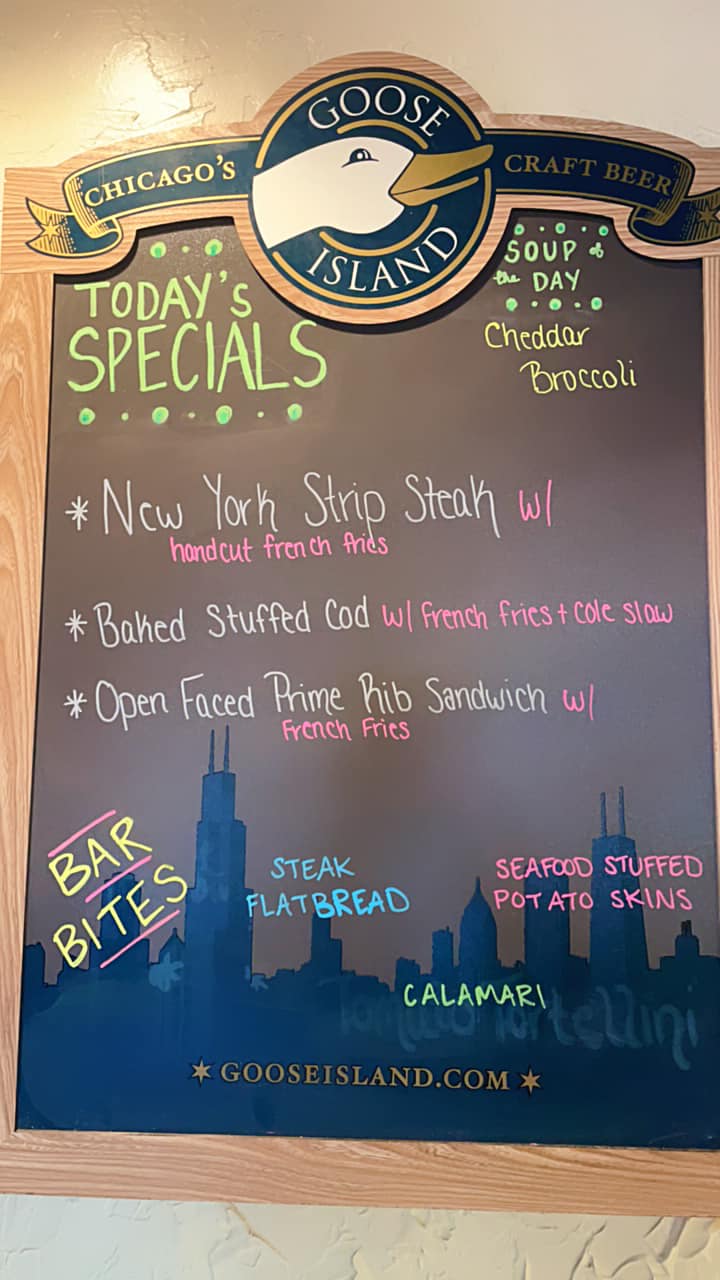 GOOSE
CHICAGO'S
CRAFT BEER
ISLAND
TODAY'S
SPECIALS
SOUP of
the DAY
Cheddar
Broccoli
* New York Strip Steak w/
handcut french fries
* Baked Stuffed Cod w/ French fries + Cole Slaw
* Open Faced Prime Rib Sandwich w/
French Fries
BAR
BITES
STEAK
FLATBREAD
SEAFOOD STUFFED
POTATO SKINS
CALAMARI
Tomato Tortellini
* GOOSEISLAND.COM *